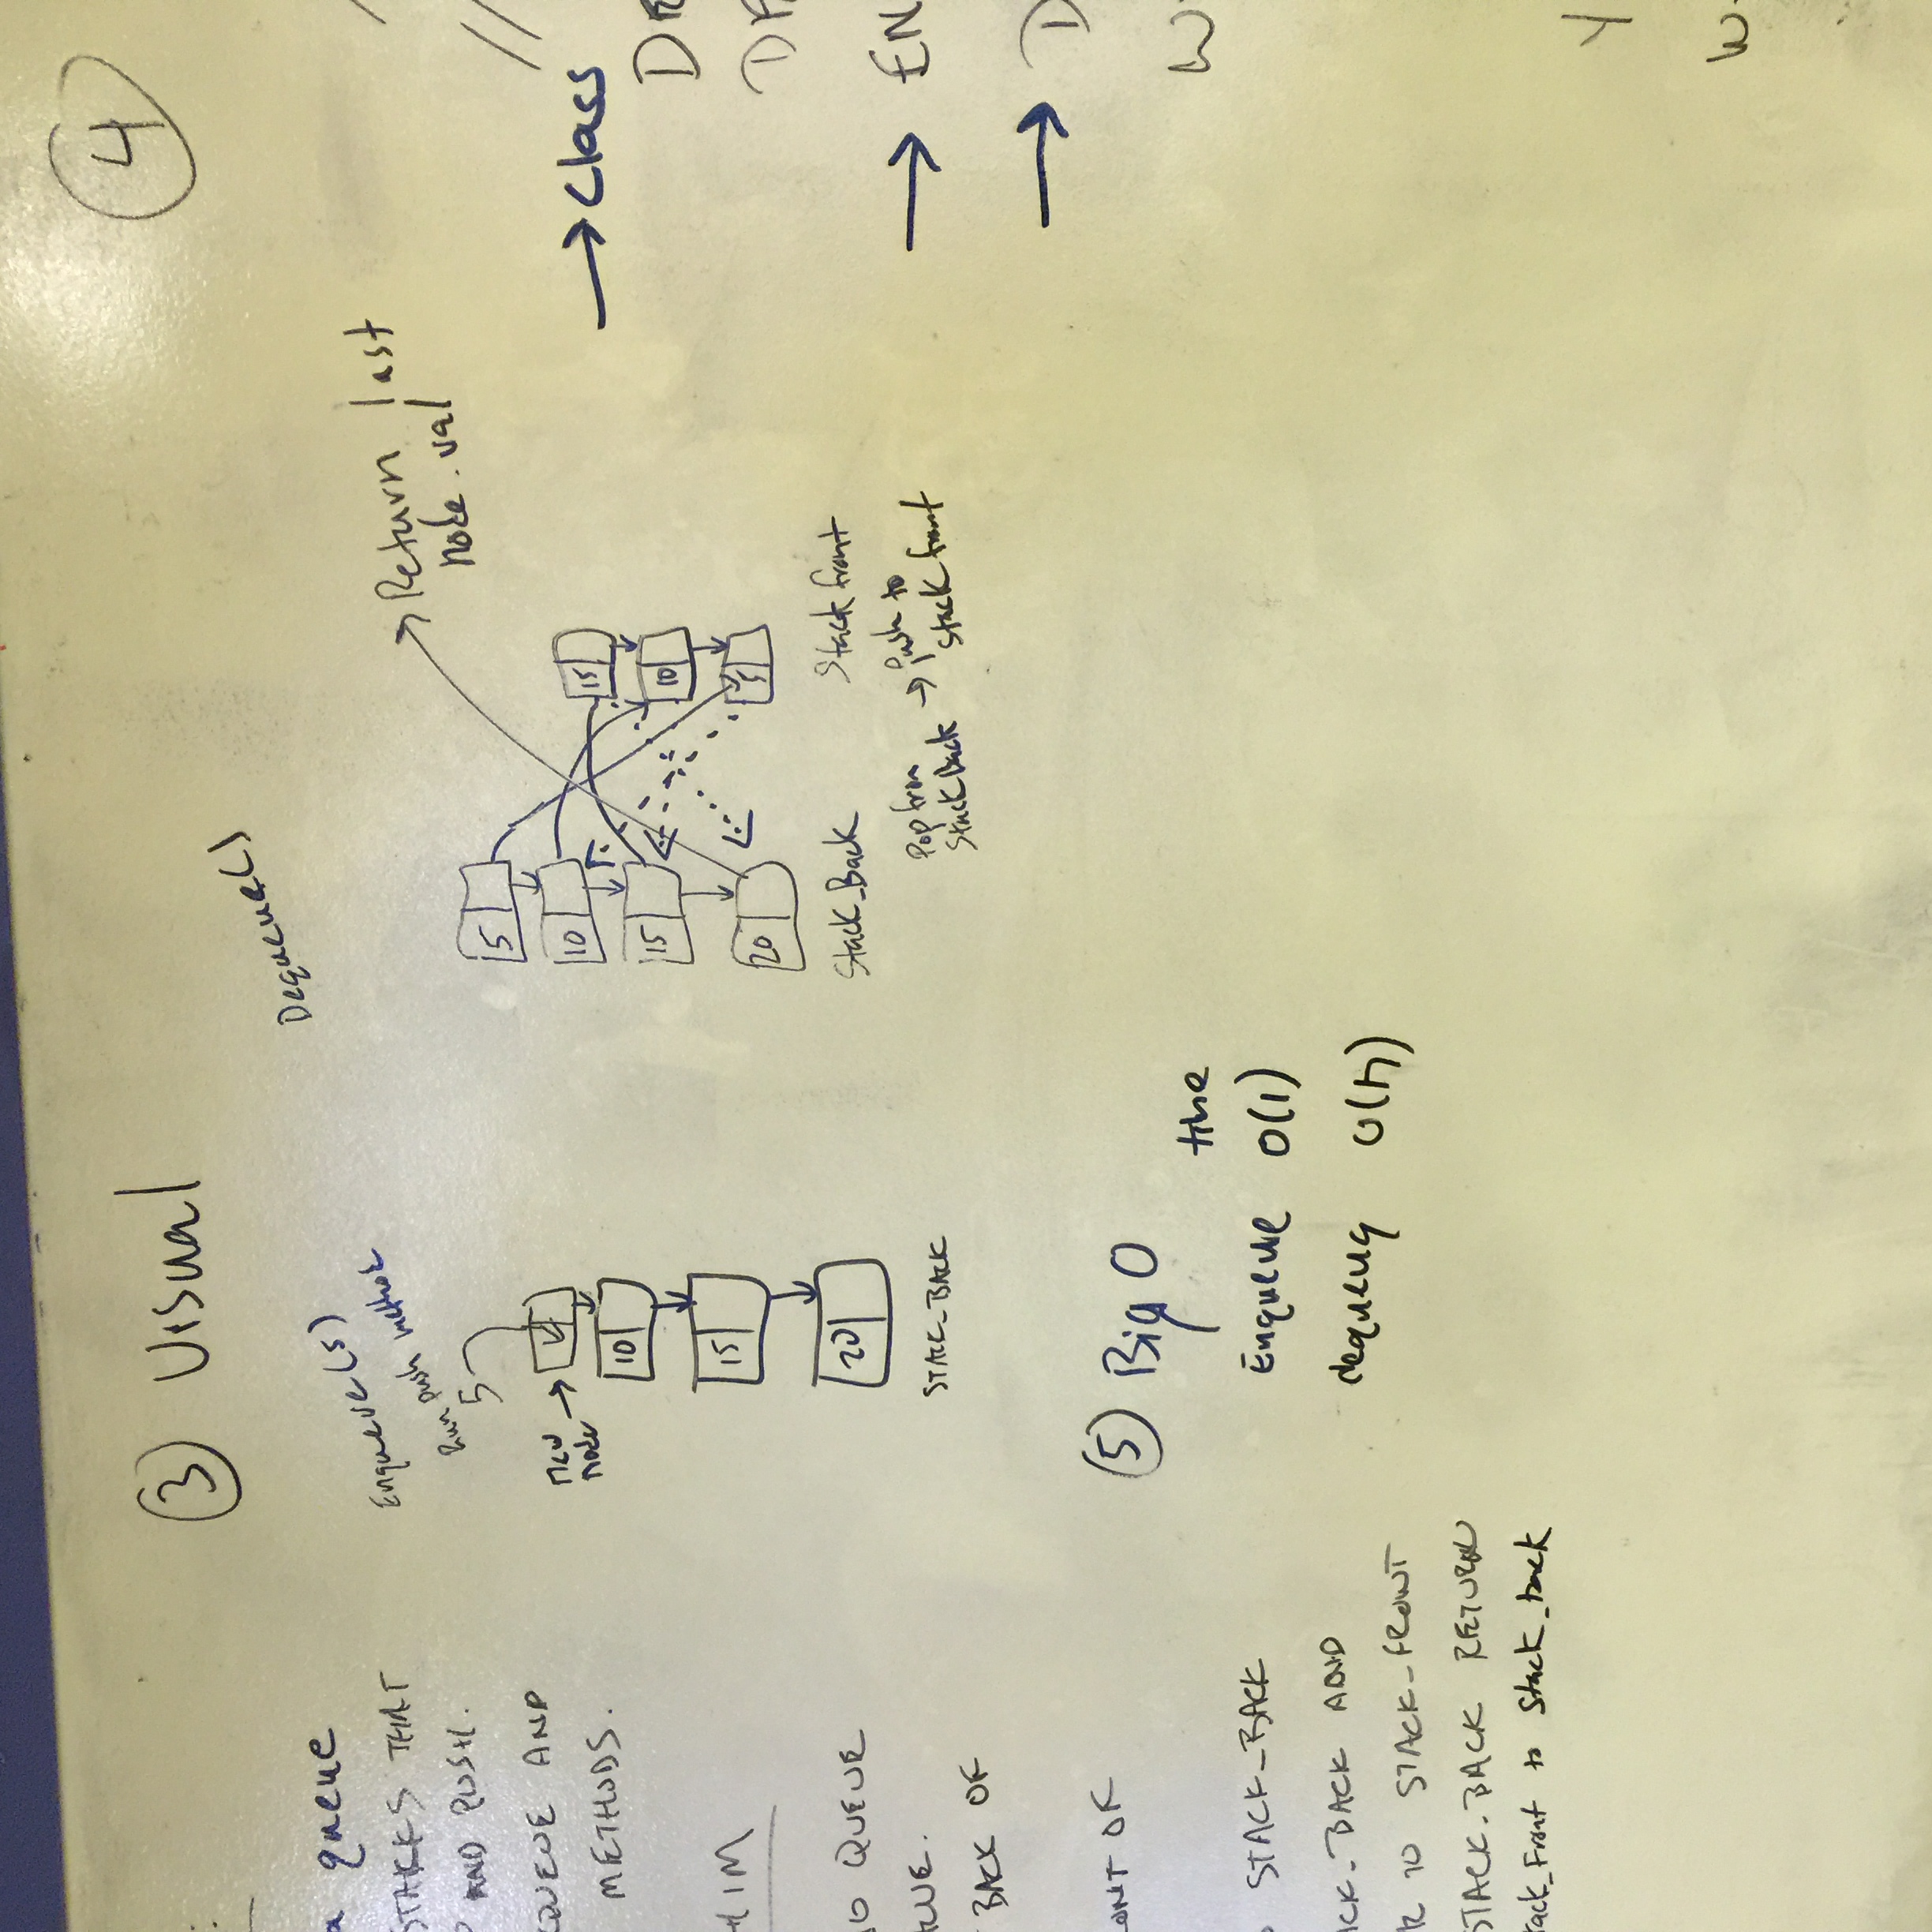 :
a queue
STAKKS THAT
AND PUSH.
QUEUE AND
METHODS.
HIM
TO QUEUE
ALUE.
BACK OF
RONT OF
STACK_BACK
ACK_BACK AND
TO STACK_FRONT
STACK_BACK RETURN
tack_Front to Stack_back
3 Visual
Enqueue(5)
Run push method
5
New
node
10
15
20
STACK_BACK
Dequeue()
Return last
node.val
5
10
15
20
15
10
5
Stack_Back
Stack front
Pop from
Stack Back
push to
stack front
5 Big O
time
Enqueue O(1)
dequeue O(n)
4
//
class
DE
EN
D
W
Y
W